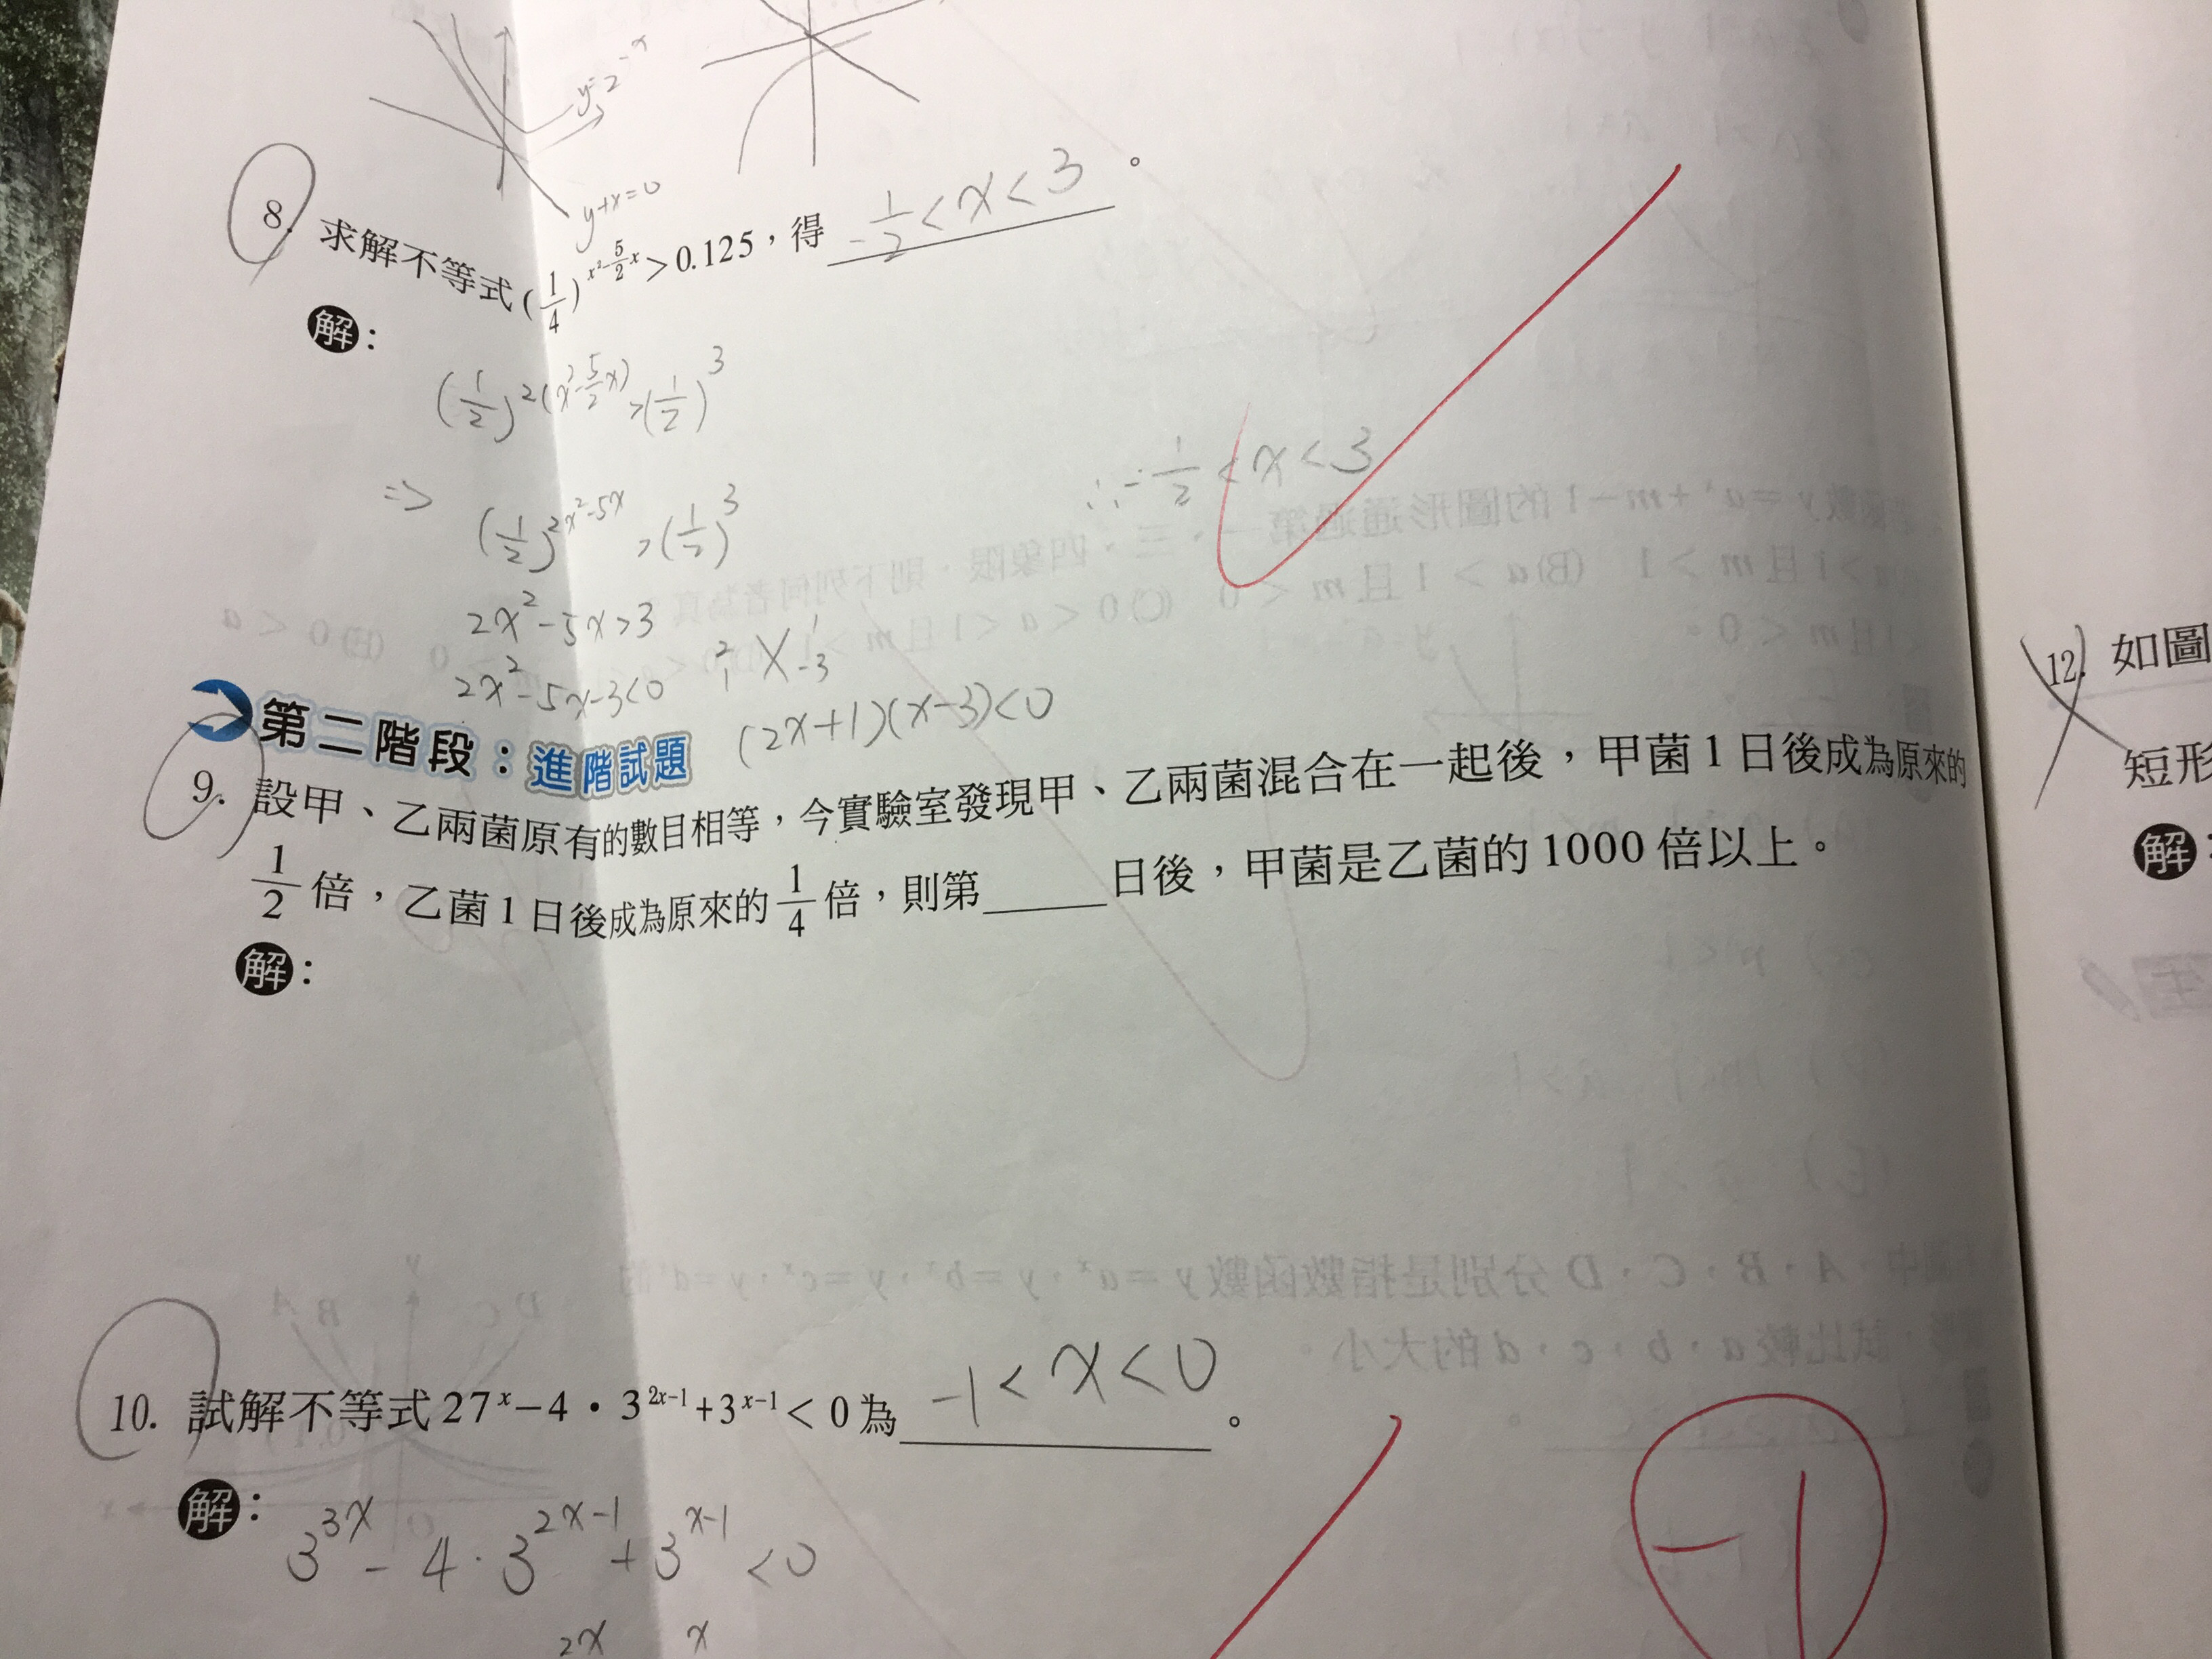 y=2^-x
y+x=0
8. 求解不等式(1/4)^(x²-5/2x)>0.125，得 -1/2<x<3 。
解：
(1/2)^2(x²-5/2x)>(1/2)^3
=> (1/2)^2x²-5x>(1/2)^3
∴-1/2<x<3
2x²-5x>3
2x²-5x-3<0
2 1
1 -3
(2x+1)(x-3)<0
第二階段：進階試題
9. 設甲、乙兩菌原有的數目相等，今實驗室發現甲、乙兩菌混合在一起後，甲菌1日後成為原來的
1/2倍，乙菌1日後成為原來的1/4倍，則第_____日後，甲菌是乙菌的1000倍以上。
解：
10. 試解不等式27^x-4·3^(2x-1)+3^(x-1)<0為 -1<x<0 。
解：
3^3x-4·3^2x-1+3^x-1<0
2x x
-1
12. 如圖
短形
解：